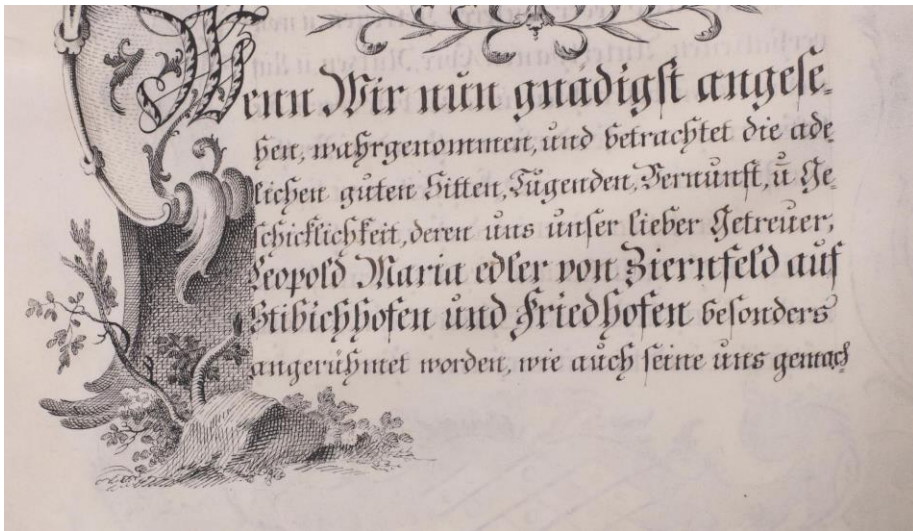 Wenn Wir nun gnädigst angese-
hen, wahrgenommen, und betrachtet die ade
lichen guten Sitten, Tugenden, Vernunft, u̅ Ge-
schicklichkeit, deren uns unser lieber Getreuer,
Leopold Maria edler von Ziernfeld auf
Stibichhofen und Friedhofen besonders
angerühmet worden, wie auch seine uns gemach